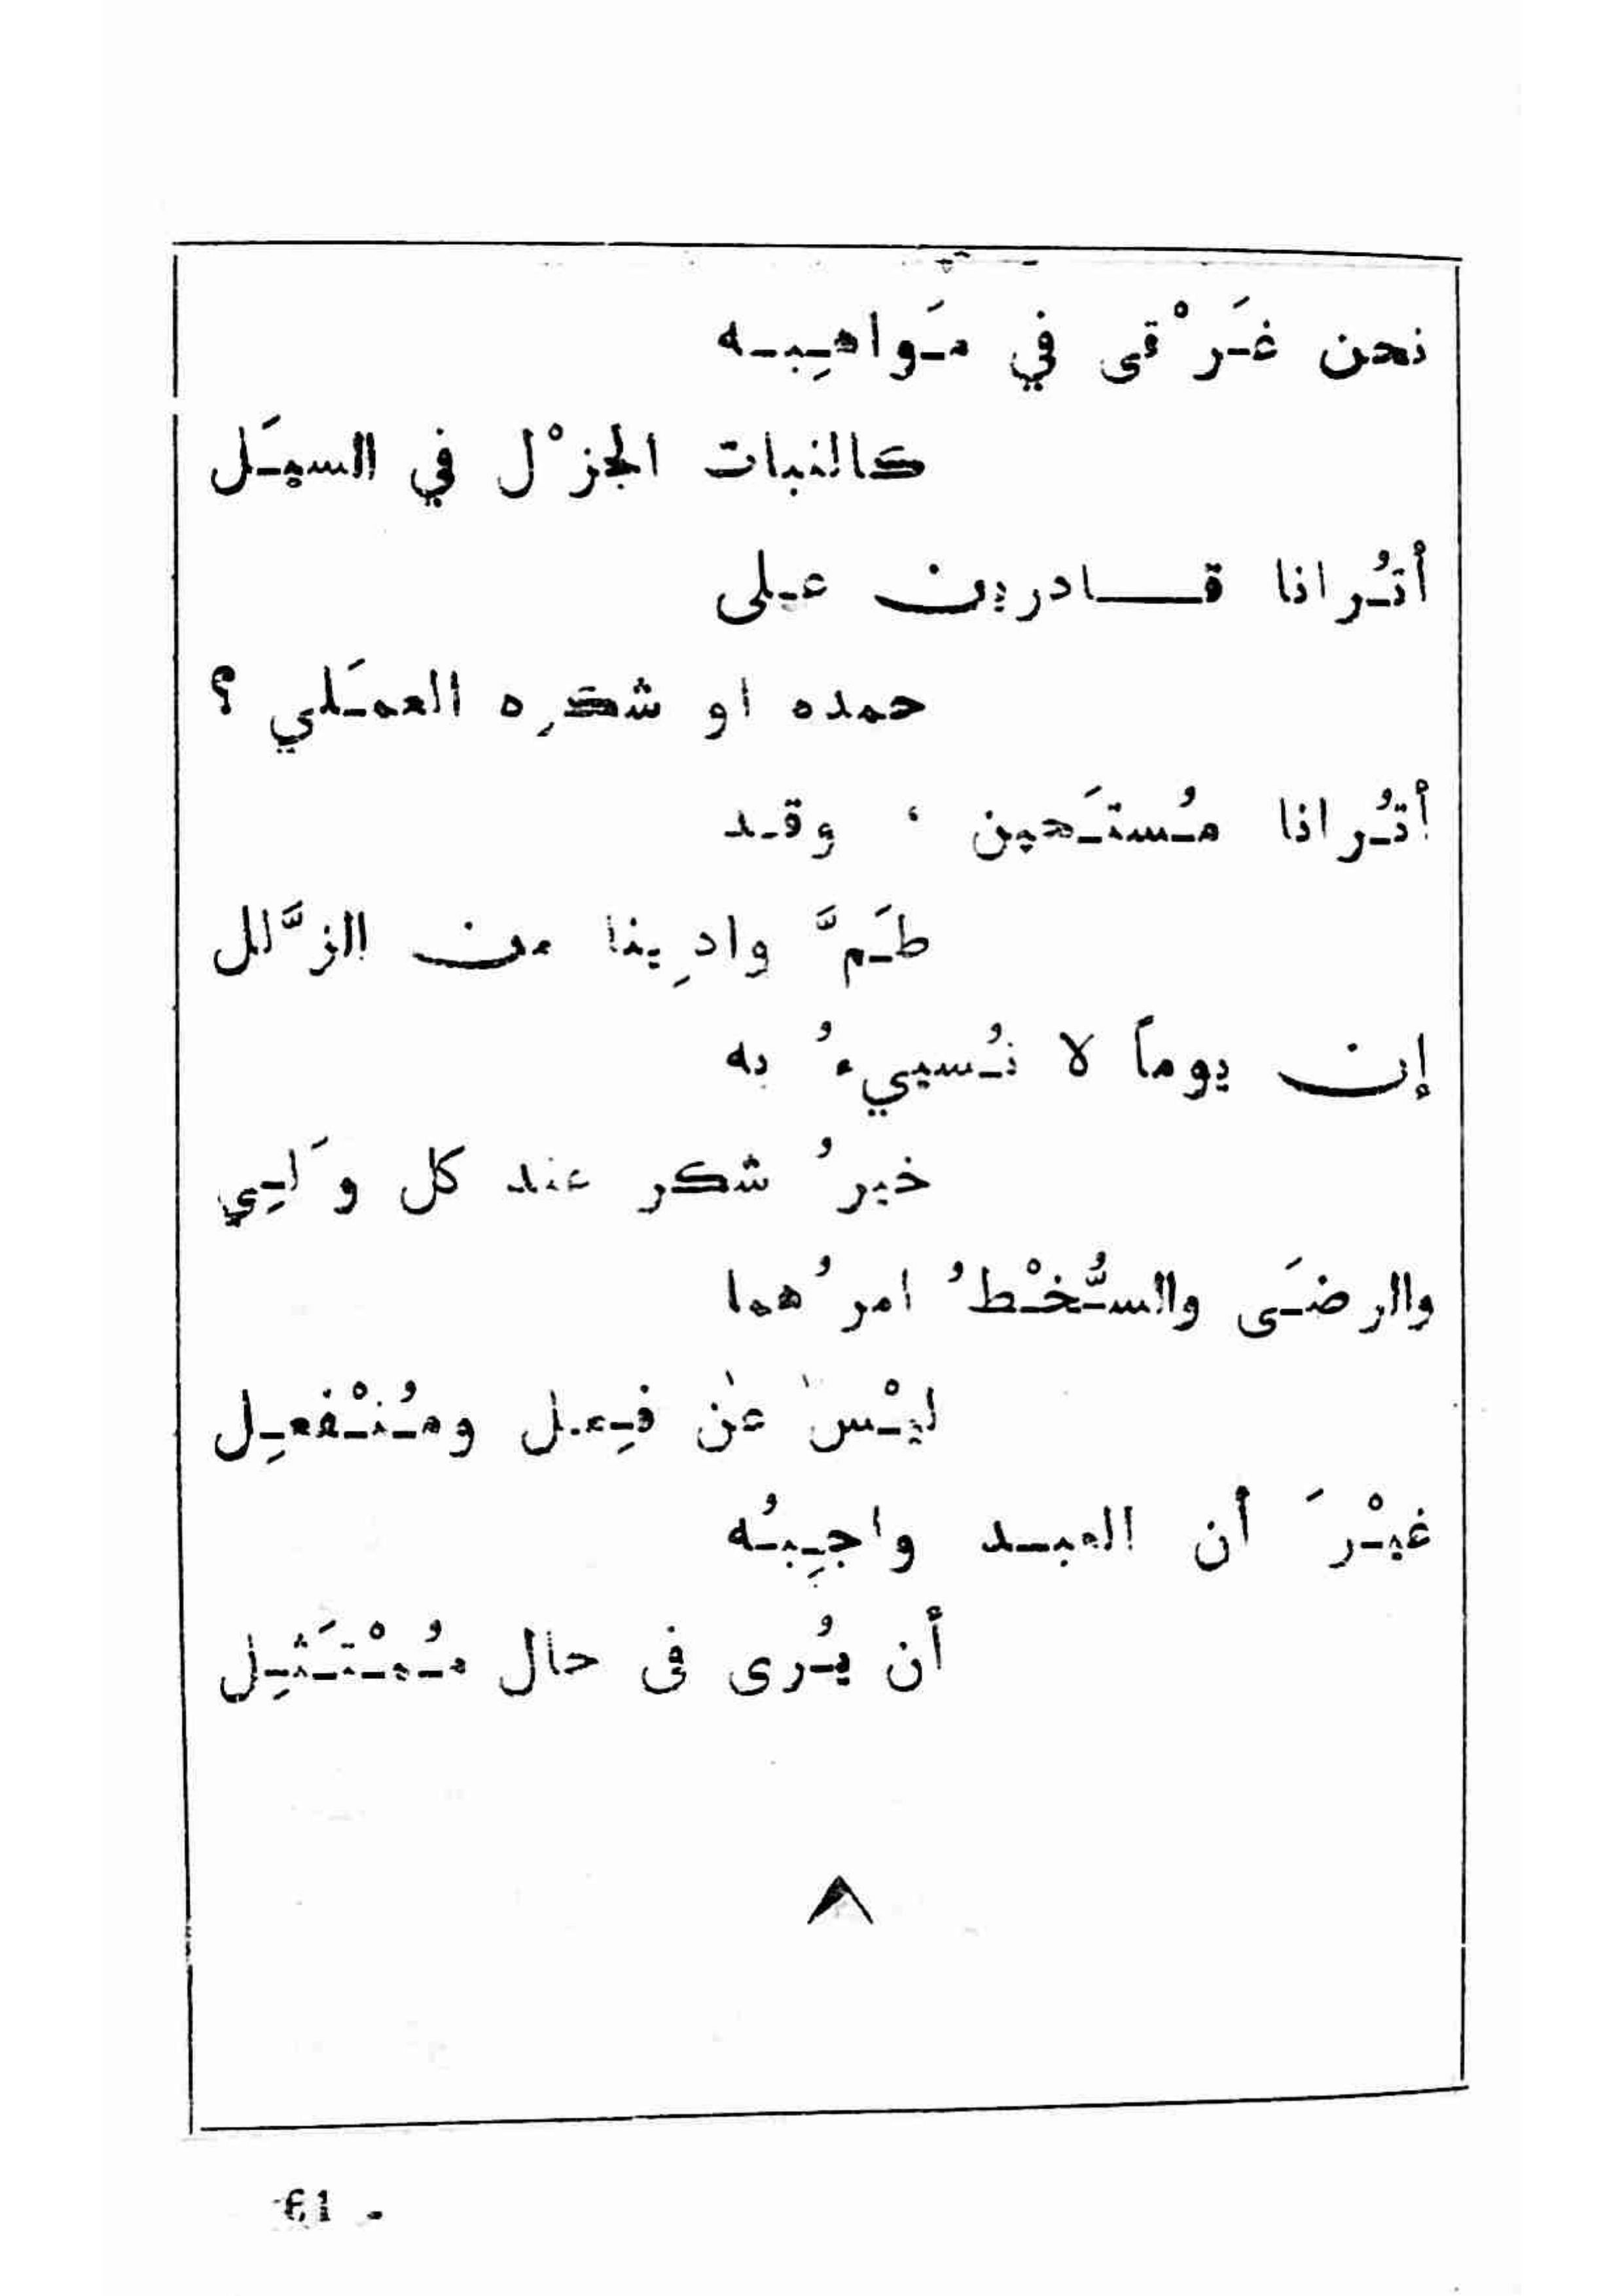 نحن غَرْقى في مَواهِبه
كالنبات الجزْل في السيَل
أتُرانا قادرين على
حمده او شكرِه العمَلي ؟
أتُرانا مُستَحين ، وقد
طَمَّ وادِينا من الزَّلل
إن يوماً لا نُسييءُ به
خيرُ شكر عند كل وَلِي
والرضَى والسُّخْطُ امرُهما
ليْسَ عَن فِعل ومُنْفعِل
غيْرَ أن العبد واجِبُه
أن يُرى فى حال مُمْتَثِل
٨
- 61 -